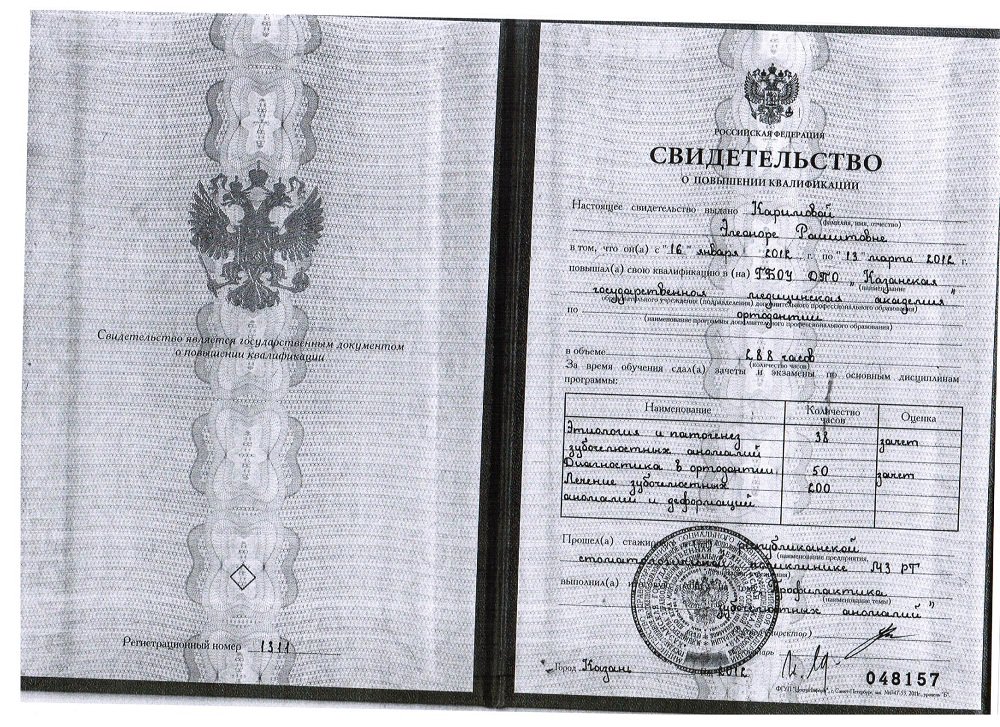 Свидетельство является государственным документом
о повышении квалификации
Регистрационный номер 1311
РОССИЙСКАЯ ФЕДЕРАЦИЯ
СВИДЕТЕЛЬСТВО
О ПОВЫШЕНИИ КВАЛИФИКАЦИИ
Настоящее свидетельство выдано Каримовой
(фамилия, имя, отчество)
Элеоноре Рашитовне
в том, что он(а) с "16" января 2012 г. по "13" марта 2012 г.
повышал(а) свою квалификацию в (на) ГБОУ ДПО „Казанская
(наименование
государственная медицинская академия"
образовательного учреждения (подразделения) дополнительного профессионального образования)
по ортодонтии
(наименование программы дополнительного профессионального образования)
в объеме 288 часов
(количество часов)
За время обучения сдал(а) зачеты и экзамены по основным дисциплинам
программы:
Наименование Количество часов Оценка
Этиология и патогенез 38 зачет
зубочелюстных аномалий
Диагностика в ортодонтии 50 зачет
Лечение зубочелюстных 200
аномалий и деформаций
Прошел(а) республиканской
(наименование предприятия,
поликлинике МЗ РТ
выполнил(а) на тему Профилактика
(наименование темы)
зубочелюстных аномалий"
Город Казань 2012
048157